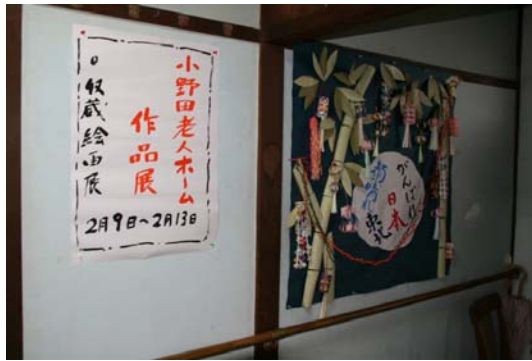 小野田老人ホーム
作品展
○収蔵絵画展
2月9日～2月13日
がんばれ
日本